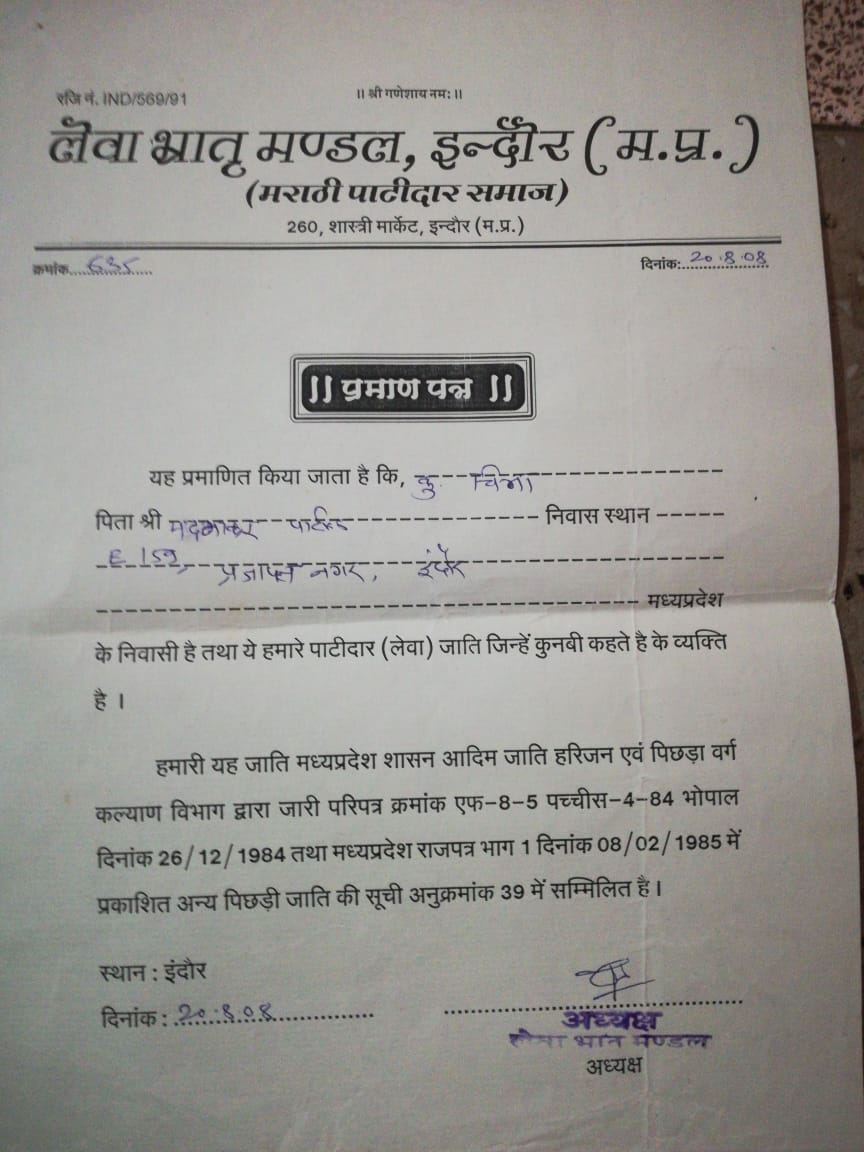 रजि नं. IND/569/91
।। श्री गणेशाय नमः ।।
लेवा भ्रातृ मण्डल, इन्दौर (म.प्र.)
(मराठी पाटीदार समाज)
260, शास्त्री मार्केट, इन्दौर (म.प्र.)
क्रमांक.... 635 .....
दिनांक:.. 20.8.08
|| प्रमाण पत्र ||
यह प्रमाणित किया जाता है कि, कु.
पिता श्री पाटील निवास स्थान
E 159, नगर, इंदौर
मध्यप्रदेश
के निवासी है तथा ये हमारे पाटीदार (लेवा) जाति जिन्हें कुनबी कहते है के व्यक्ति
है ।
हमारी यह जाति मध्यप्रदेश शासन आदिम जाति हरिजन एवं पिछड़ा वर्ग
कल्याण विभाग द्वारा जारी परिपत्र क्रमांक एफ-8-5 पच्चीस-4-84 भोपाल
दिनांक 26/12/1984 तथा मध्यप्रदेश राजपत्र भाग 1 दिनांक 08/02/1985 में
प्रकाशित अन्य पिछड़ी जाति की सूची अनुक्रमांक 39 में सम्मिलित है।
स्थान : इंदौर
दिनांक : 20.8.08
अध्यक्ष
मण्डल
अध्यक्ष